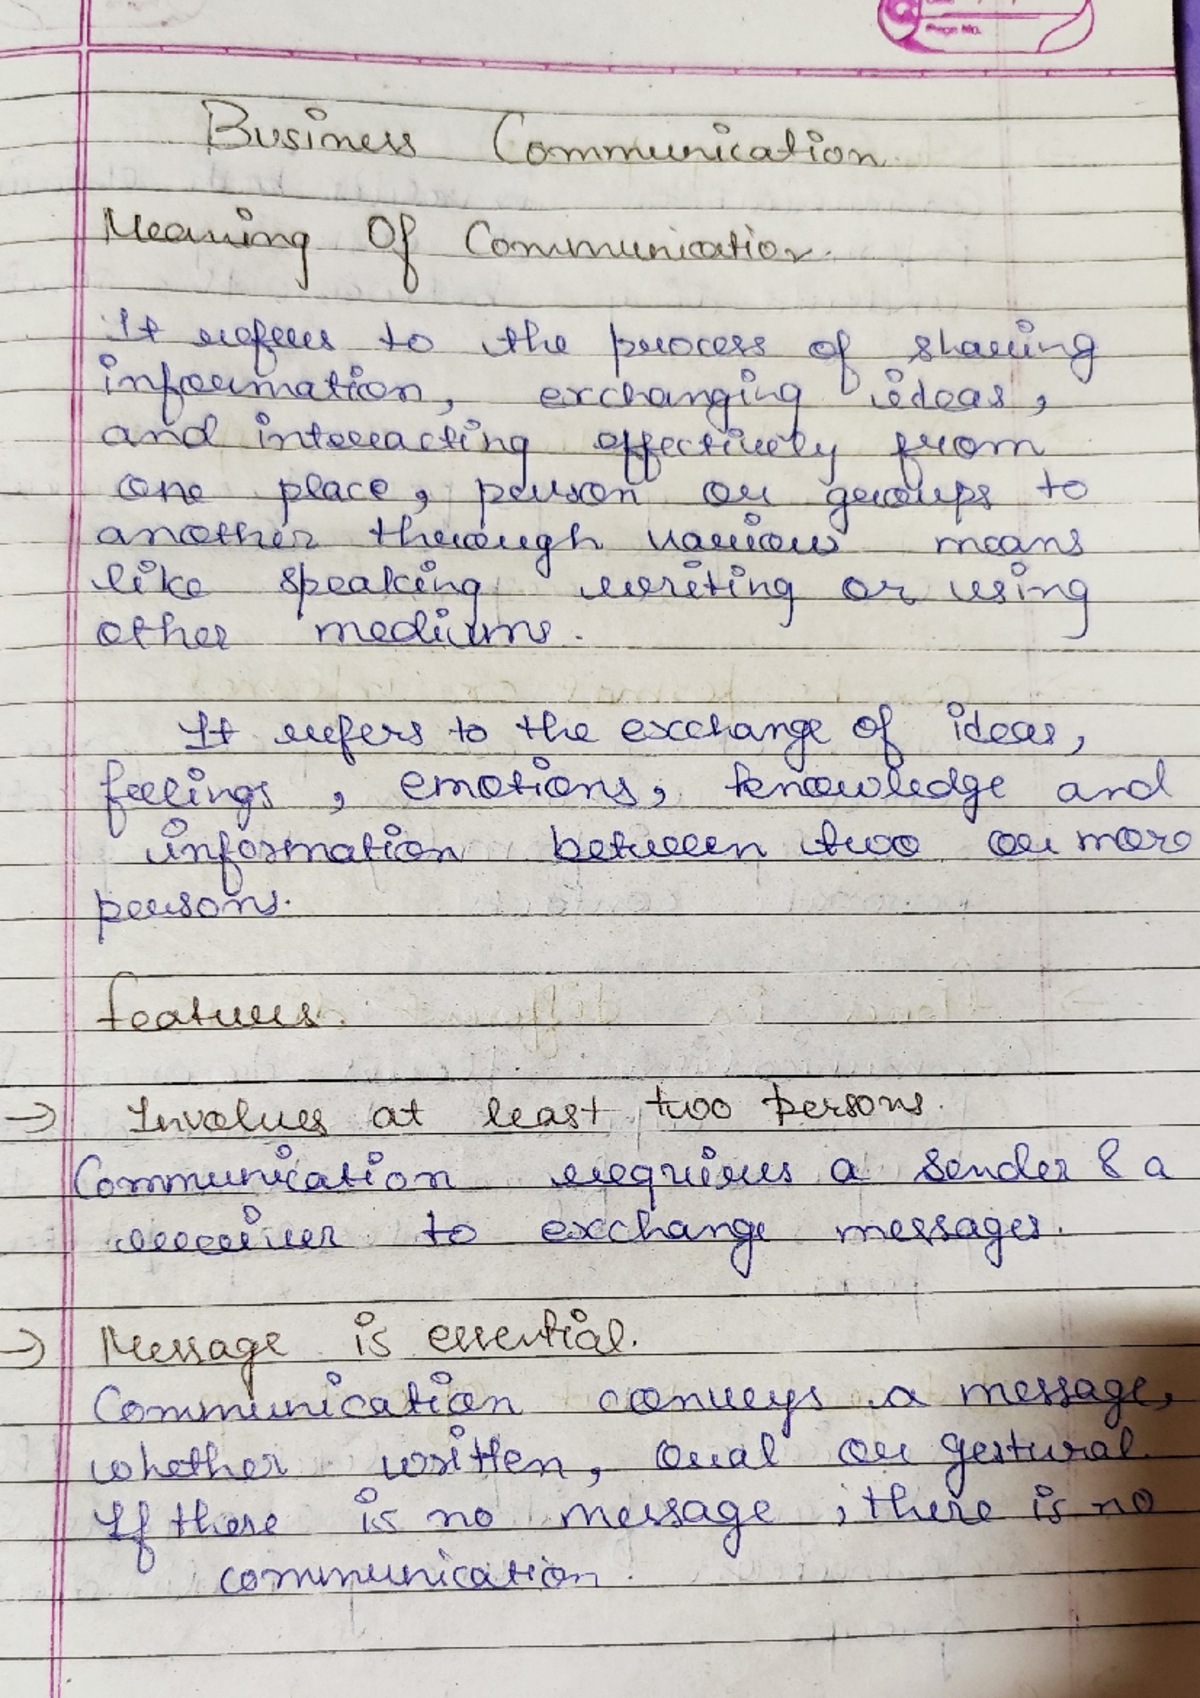 Page No.
Business Communication
Meaning Of Communication.
It refers to the process of sharing
information, exchanging ideas,
and interacting effectively from
one place, person or groups to
another through various means
like speaking writing or using
other mediums.
It refers to the exchange of ideas,
feelings, emotions, knowledge and
information between two or more
persons.
features.
→ Involves at least two persons.
Communication requires a sender & a
receiver to exchange messages.
→ Message is essential.
Communication conveys a message,
whether written, oral or gestural.
If there is no message, there is no
communication.